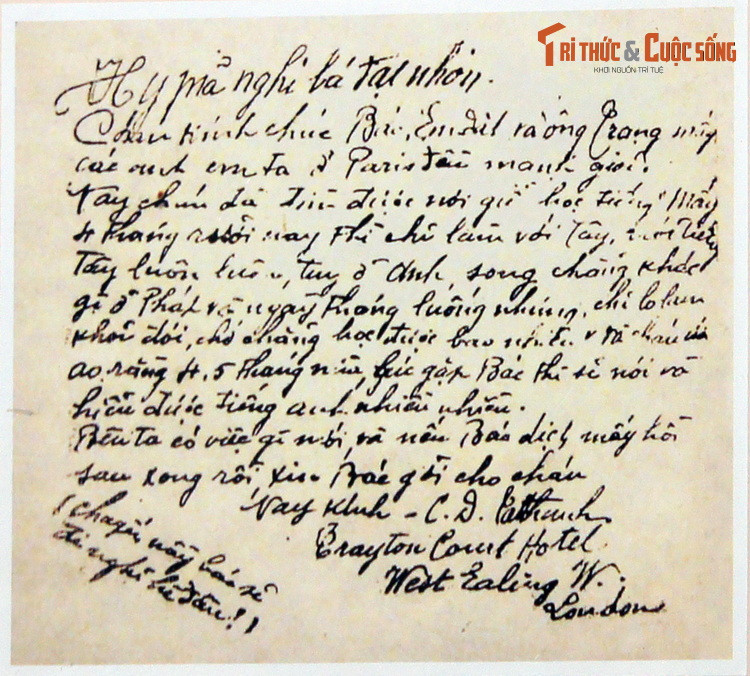 TRI THỨC & CUỘC SỐNG
KHƠI NGUỒN TRI TUỆ
Hy mã nghi bá đại nhơn.
Cháu kính chúc Bác, Emdil và ông Trạng mấy
các anh em ta ở Paris đều mạnh giỏi.
Nay cháu đã tìm được nơi giể học tiếng. Mấy
4 tháng rưỡi nay thì chỉ làm với Tây, nói tiếng
Tây luôn luôn, tuy ở Anh, song chẳng khác
gì ở Pháp và ngày tháng luống những, chỉ lo lum
khỏi đói, chớ chẳng học được bao nhiêu. Và cháu
ao rằng 4, 5 tháng nữa, lúc gặp Bác thì sẽ nói và
hiểu được tiếng anh nhiều nhiều.
Bên ta có việc gì mới, và nếu Bác dịch mấy hồi
sau xong rồi xin Bác gởi cho cháu
Nay kính - C. D. Tatthanh
Drayton Court Hotel
West Ealing W.
London
( nầy bác sẽ
đi nghỉ đâu!)